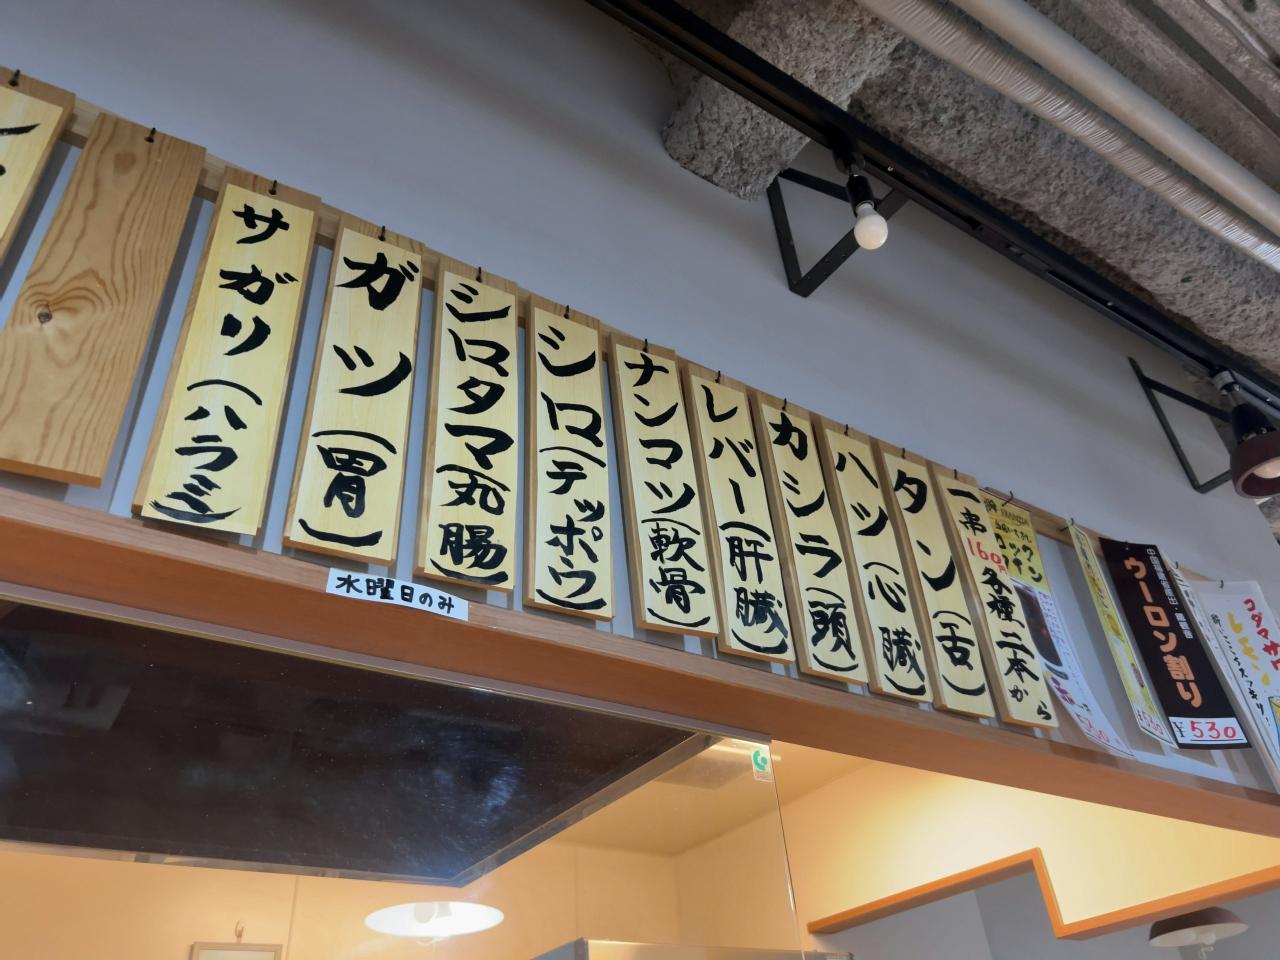 一串160円各種二本から
タン(舌)
ハツ(心臓)
カシラ(頭)
レバー(肝臓)
ナンコツ(軟骨)
シロ(テッポウ)
シロタマ(丸腸)
ガツ(胃)
サガリ(ハラミ)
水曜日のみ
ウーロン割り
¥530